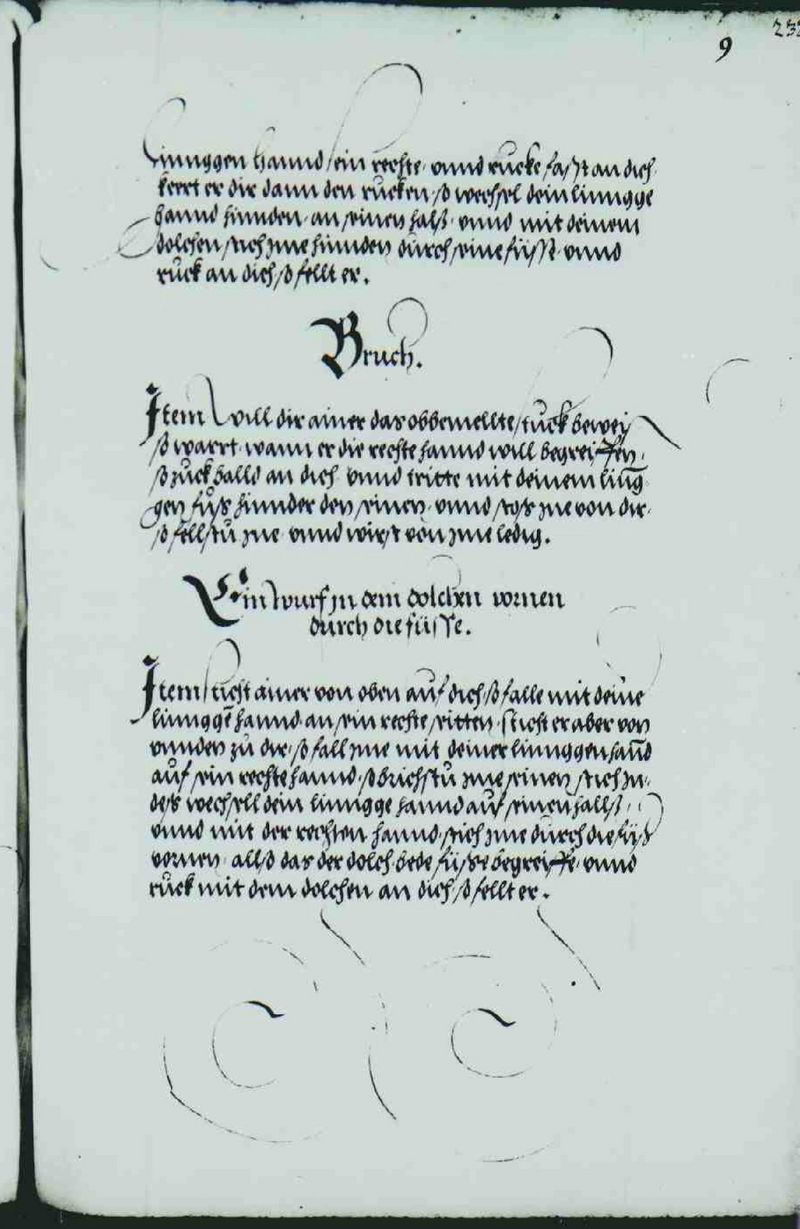 232
9
linnggen hannd sein rechte, vnnd rucke fasst an dich,
kerrt er dir dann den rucken, so wechsel dein linngge
hannd hinnden, an seinen halß, vnnd mit deinem
dolchen stich jme hinnden durch seine füsse, vnnd
ruck an dich, so fellt er.
Bruch.
Item will dir ainer das obbemellte stuck bewey
so warrt, wann er die rechte hannd will begreiffen,
so zuck balld an dich, vnnd tritte mit deinem linng
gen fuß hinnder den seinen, vnnd stos jne von dir,
so fellstu jne, vnnd wirst von jme ledig.
Ein wurf jn dem dolchen vornen
durch die füsse.
Item sticht ainer von oben auf dich, so falle mit deine
linnggē hannd, an sein rechte seitten, sticht er aber von
vnnden zu dir, so fall jme mit deiner linnggen hañd
auf sein rechte hannd, so brichstu jme seinen stich, jn
des wechsell dein linngge hannd auf seinen hallß,
vnnd mit der rechten hannd, stich jme durch die füß
vornen, allso das der dolch bede füsse begreiffe, vnnd
ruck mit dem dolchen an dich, so fellt er.